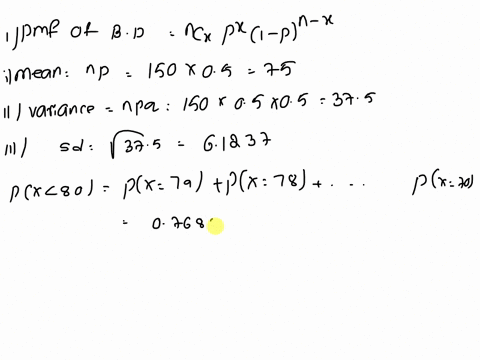 1) pmf of B.D = nCx p^x (1-p)^n-x
i) mean: np = 150 x 0.5 = 75
ii) variance = npq: 150 x 0.5 x 0.5 = 37.5
iii) sd: √37.5 = 6.1237
p(x<80) = p(x=79) + p(x=78) + ... p(x=70)
= 0.768